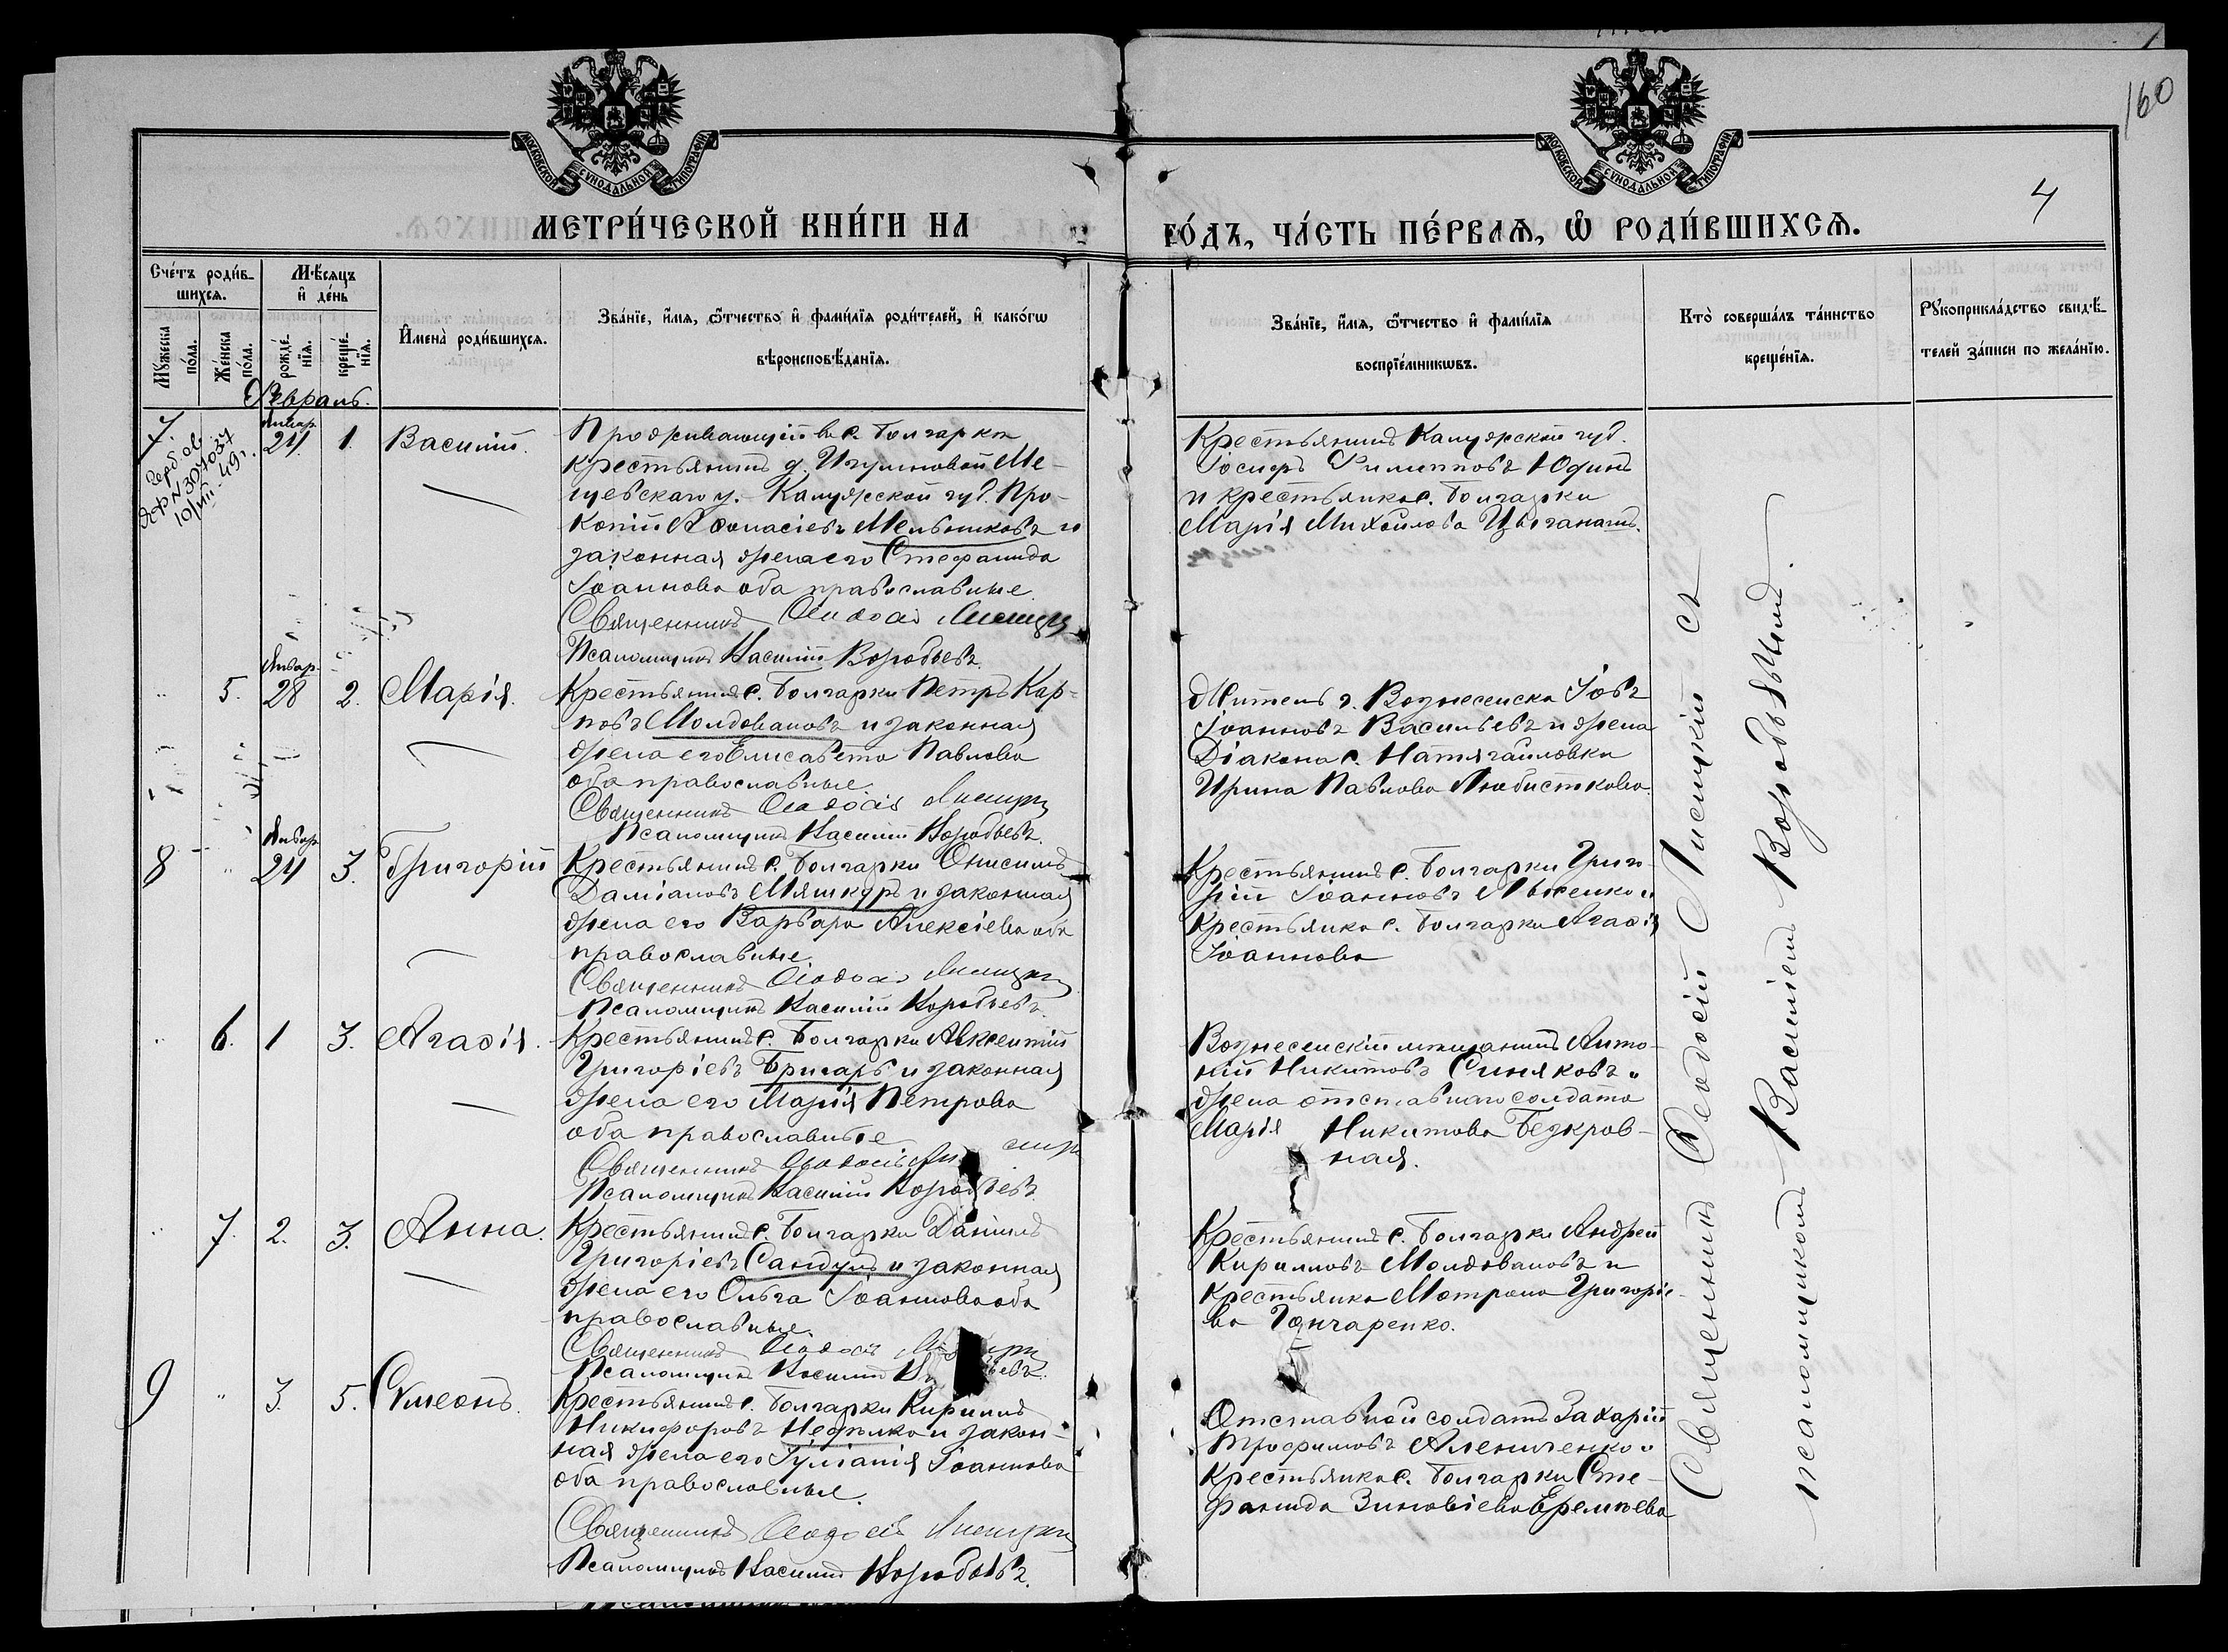 160
МОСКОВСКОЙ СѴНОДАЛЬНОЙ ТИПОГРАФІИ
МОСКОВСКОЙ СѴНОДАЛЬНОЙ ТИПОГРАФІИ
4
МЕТРИ́ЧЕСКОЙ КНИ́ГИ НА
ГО́ДЪ, ЧА́СТЬ ПЕ́РВАѦ, Ѡ҆ РОДИ́ВШИХСѦ.
Сче́тъ роди́в-
шихсѧ.
Мѣ́сяцъ
и҆ де́нь
Мꙋ́жеска
по́ла.
Же́нска
по́ла.
рожде́-
нїѧ.
креще́-
нїѧ.
И҆мена̀ роди́вшихсѧ.
Зва́нїе, и҆́мѧ, ѻ҆́тчество и҆ фами́лїѧ роди́телей, и҆ како́гѡ
вѣроисповѣ́данїѧ.
Зва́нїе, и҆́мѧ, ѻ҆́тчество и҆ фами́лїѧ
воспрїе́мникѡвъ.
Кто̀ соверша́лъ та́инство
креще́нїѧ.
Рꙋкоприкла́дство свидѣ́-
телей за́писи по жела́нїю.
Февраль.
7. Январ. 24. 1. Василій.
10/VIII-49г.
Проживающій в с. Болгарка
крестьянинъ д. Игумновой Ме-
щевскаго у. Калужской губ. Про-
копій Аѳонасіевъ Мельниковъ и
законная жена его Стефанида
Іоаннова оба православные.
Священникъ Ѳеодосій Лисицкій
Псаломщикъ Василій Воробьевъ.
Крестьянинъ Калужской губ.
Іосифъ Филипповъ Юдинъ
и крестьянка с. Болгарки
Марія Михайлова Цыганашъ.
" 5. Январ. 28 2. Марія.
Крестьянинъ с. Болгарки Петръ Кар-
повъ Молдовановъ и законная
жена его Елисавета Павлова
оба православные.
Священникъ Ѳеодосій Лисицкій
Псаломщикъ Василій Воробьевъ.
Житель г. Вознесенска Іовъ
Іоанновъ Васильевъ и жена
Діакона с. Натягайловки
Ирина Павлова Любисткова.
8 " Январ. 24 3. Григорій
Крестьянинъ с. Болгарки Онисимъ
Даміановъ Мяшкуръ и законная
жена его Варвара Алексіева оба
православные.
Священникъ Ѳеодосій Лисицкій
Псаломщикъ Василій Воробьевъ.
Крестьянинъ с. Болгарки Григо-
рій Іоанновъ Лысенко и
Крестьянка с. Болгарки Агаѳія
Іоаннова
" 6. 1 3. Агаѳія.
Крестьянинъ с. Болгарки Авксентій
Григоріевъ Бригаръ и законная
жена его Марія Петрова
оба православные
Священникъ Ѳеодосій
Псаломщикъ Василій Воробьевъ.
Вознесенскій мѣщанинъ Анто-
ній Никитовъ Синяковъ и
жена отставнаго солдата
Марія Никитова Безкров-
ная.
" 7. 2. 3. Анна.
Крестьянинъ с. Болгарки Даніилъ
Григоріевъ Сандулъ и законная
жена его Ольга Іоаннова оба
православные.
Священникъ Ѳеодосій
Псаломщикъ Василій
Крестьянинъ с. Болгарки Андрей
Кирилловъ Молдовановъ и
Крестьянка Матрона Григоріе-
ва Гончаренко.
9 " 3. 5. Сѵмеонъ.
Крестьянинъ с. Болгарки Кириллъ
Никифоровъ Недѣлко и закон-
ная жена его Іуліанія Іоаннова
оба православные.
Священникъ Ѳеодосій Лисицкій
Псаломщикъ Василій Воробьевъ.
Отставной солдатъ Захарій
Трофимовъ Алениченко и
Крестьянка с. Болгарки Сте-
фанида Зиновіева Еремѣева
Священникъ Ѳеодосій Лисицкій съ
псаломщикомъ Василіемъ Воробьевымъ.